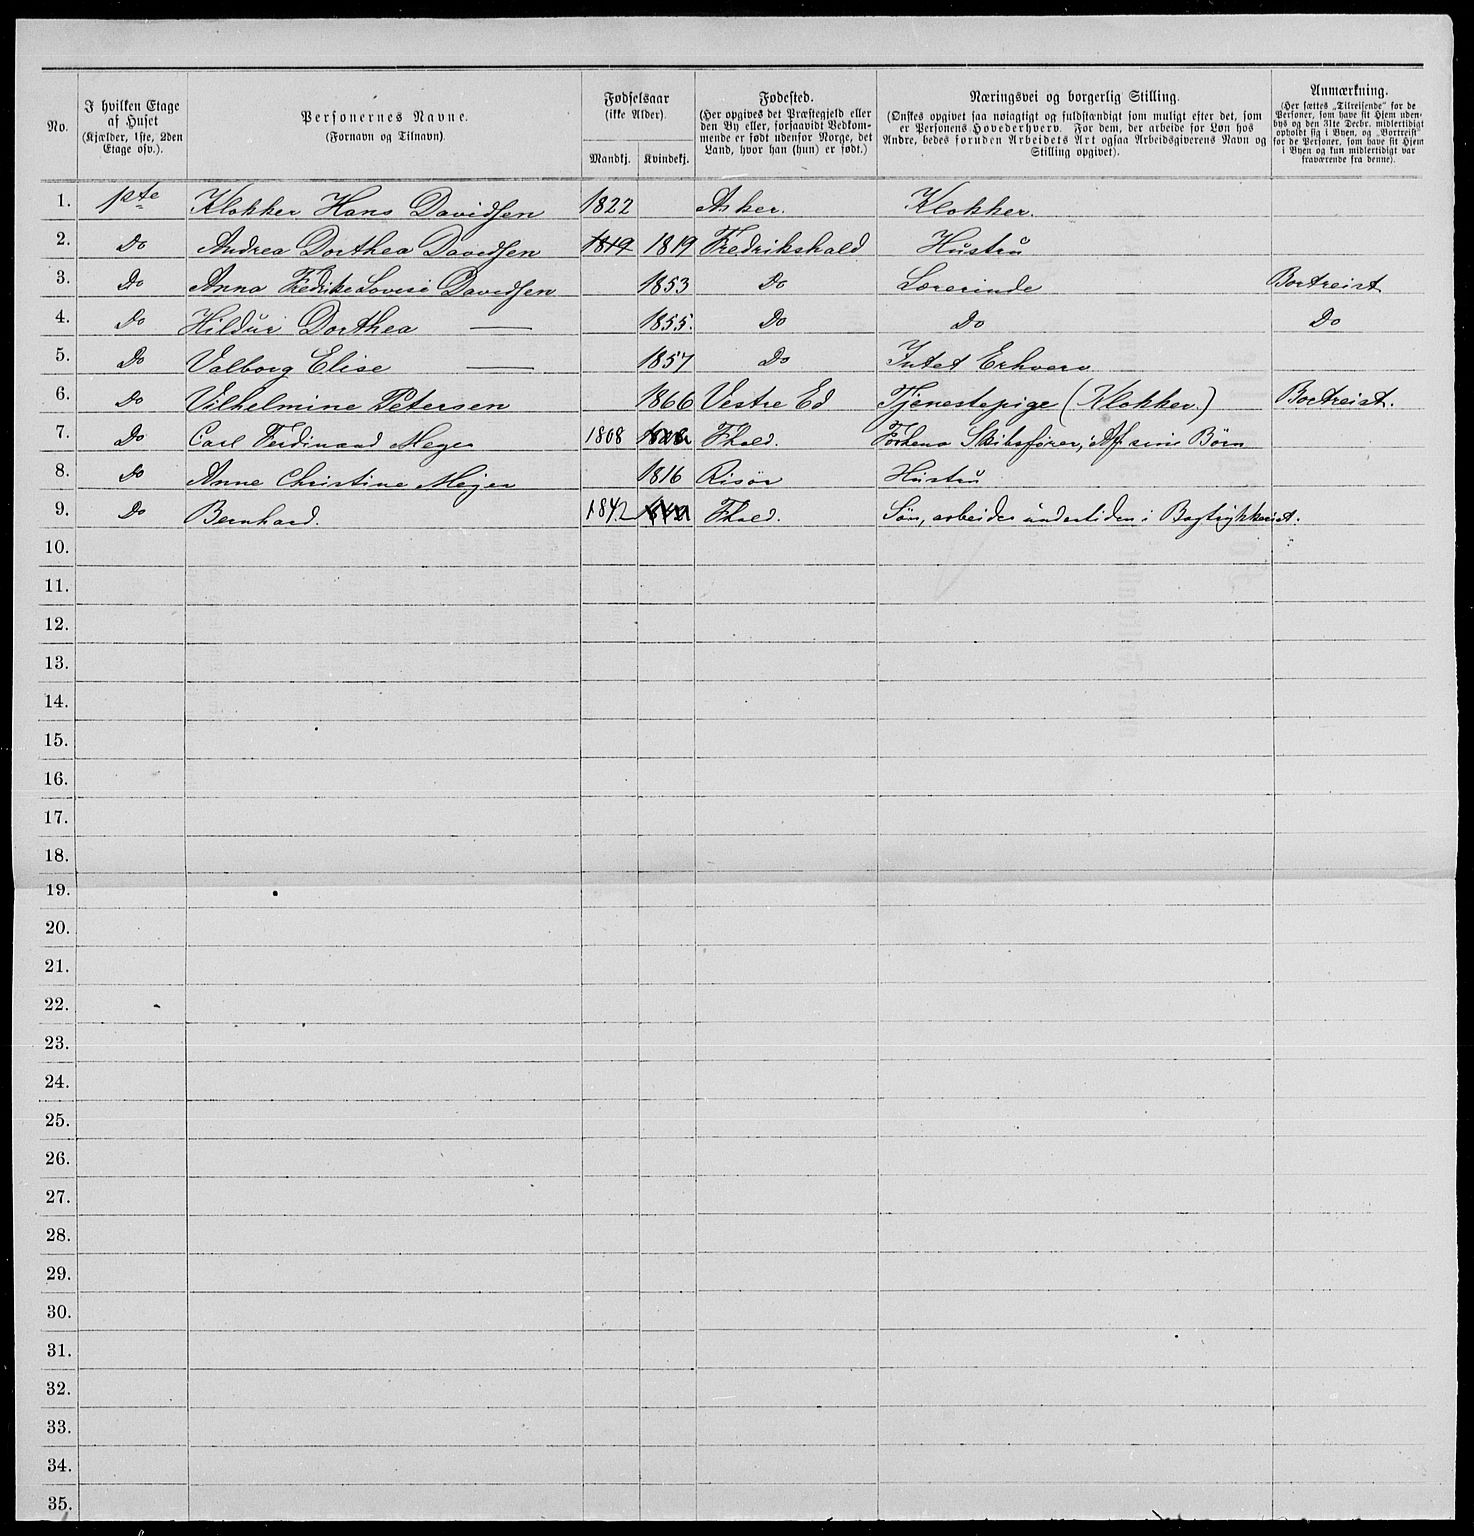 No.
I hvilken Etage
af Huset
(Kjælder, 1ste, 2den
Etage osv.).
Personernes Navne.
(Fornavn og Tilnavn).
Fødselsaar
(ikke Alder).
Mandkj. Kvindekj.
Fødested.
(Her opgives det Præstegjeld eller
den By eller, forsaavidt Vedkom-
mende er født udenfor Norge, det
Land, hvor han (hun) er født.)
Næringsvei og borgerlig Stilling.
(Ønskes opgivet saa nøiagtigt og fuldstændigt som muligt efter det, som
er Personens Hovederhverv. For dem, der arbeide for Løn hos
Andre, bedes foruden Arbeidets Art ogsaa Arbeidsgiverens Navn og
Stilling opgivet).
Anmærkning.
(Her sættes „Tilreisende“ for de
Personer, som have sit Hjem uden-
bys og den 31te Decbr. midlertidigt
opholdt sig i Byen, og „Bortreist“
for de Personer, som have sit Hjem
i Byen og kun midlertidigt var
fraværende fra denne).
1. 1ste Klokker Hans Davidsen 1822 Asker. Klokker.
2. Do Andrea Dorthea Davidsen 1819 1819 Fredrikshald Hustru
3. Do Anna Fredrike Lovise Davidsen 1853 Do Lærerinde Bortreist
4. Do Hildur Dorthea — 1855. Do Do Do
5. Do Valborg Elise — 1857 Do Intet Erhverv
6. Do Vilhelmine Petersen 1866 Vestre Ed Tjenestepige (Klokker.) Bortreist.
7. Do Carl Ferdinand Meyer 1808 Fhald. Forhens Skibsfører, Af sine Børn
8. Do Anne Christine Meyer 1816 Risør Hustru
9. Do Bernhard. 1842 Fhald. Søn, arbeider undertiden i Bogtrykkeriet.
10.
11.
12.
13.
14.
15.
16.
17.
18.
19.
20.
21.
22.
23.
24.
25.
26.
27.
28.
29.
30.
31.
32.
33.
34.
35.